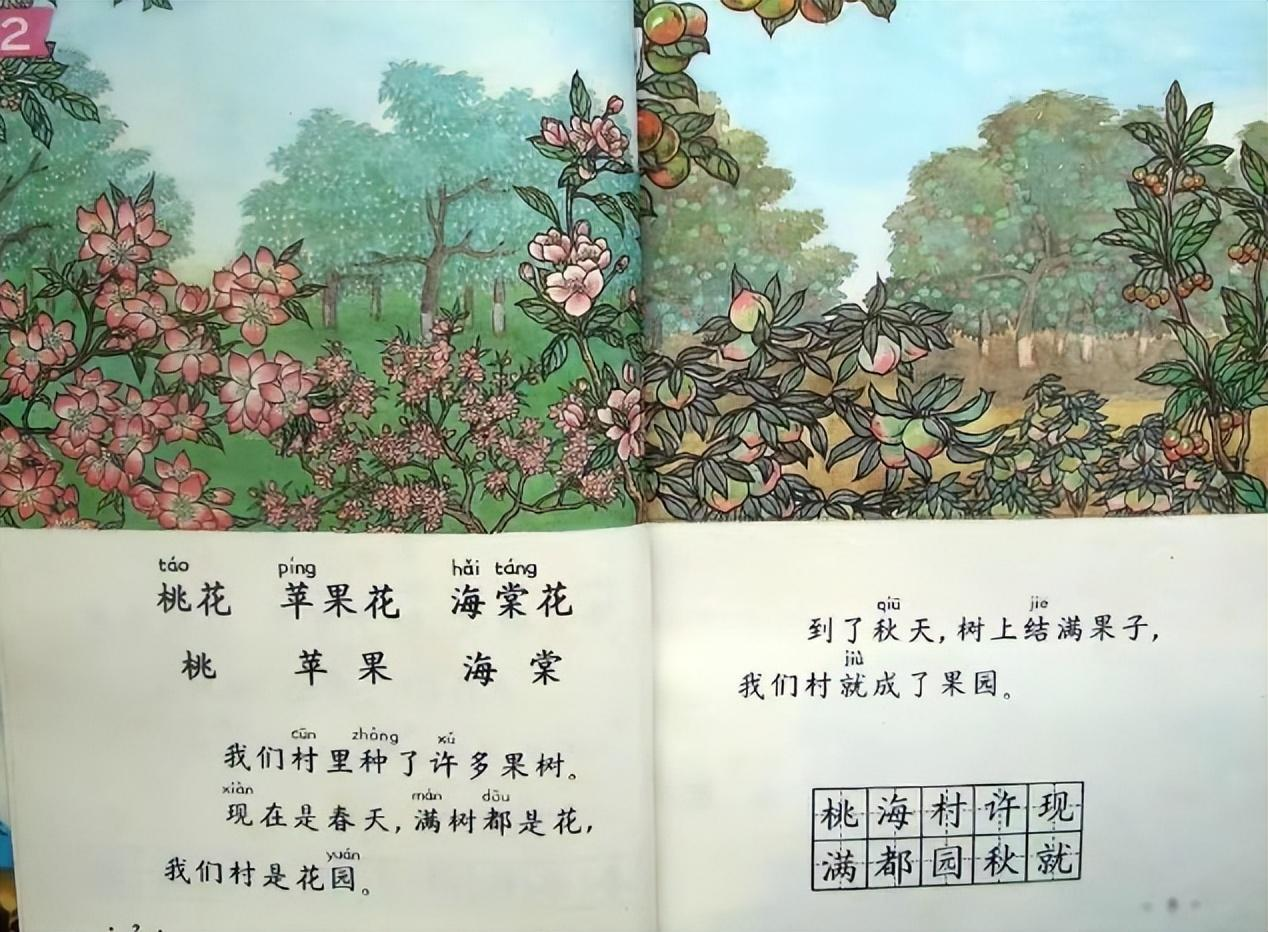 2
táo píng hǎi táng
桃花 苹果花 海棠花
桃 苹果 海棠
cūn zhòng xǔ
我们村里种了许多果树。
xiàn mǎn dōu
现在是春天,满树都是花,
yuán
我们村是花园。
· 2 ·
qiū jiē
到了秋天,树上结满果子,
jiù
我们村就成了果园。
桃海村许现
满都园秋就